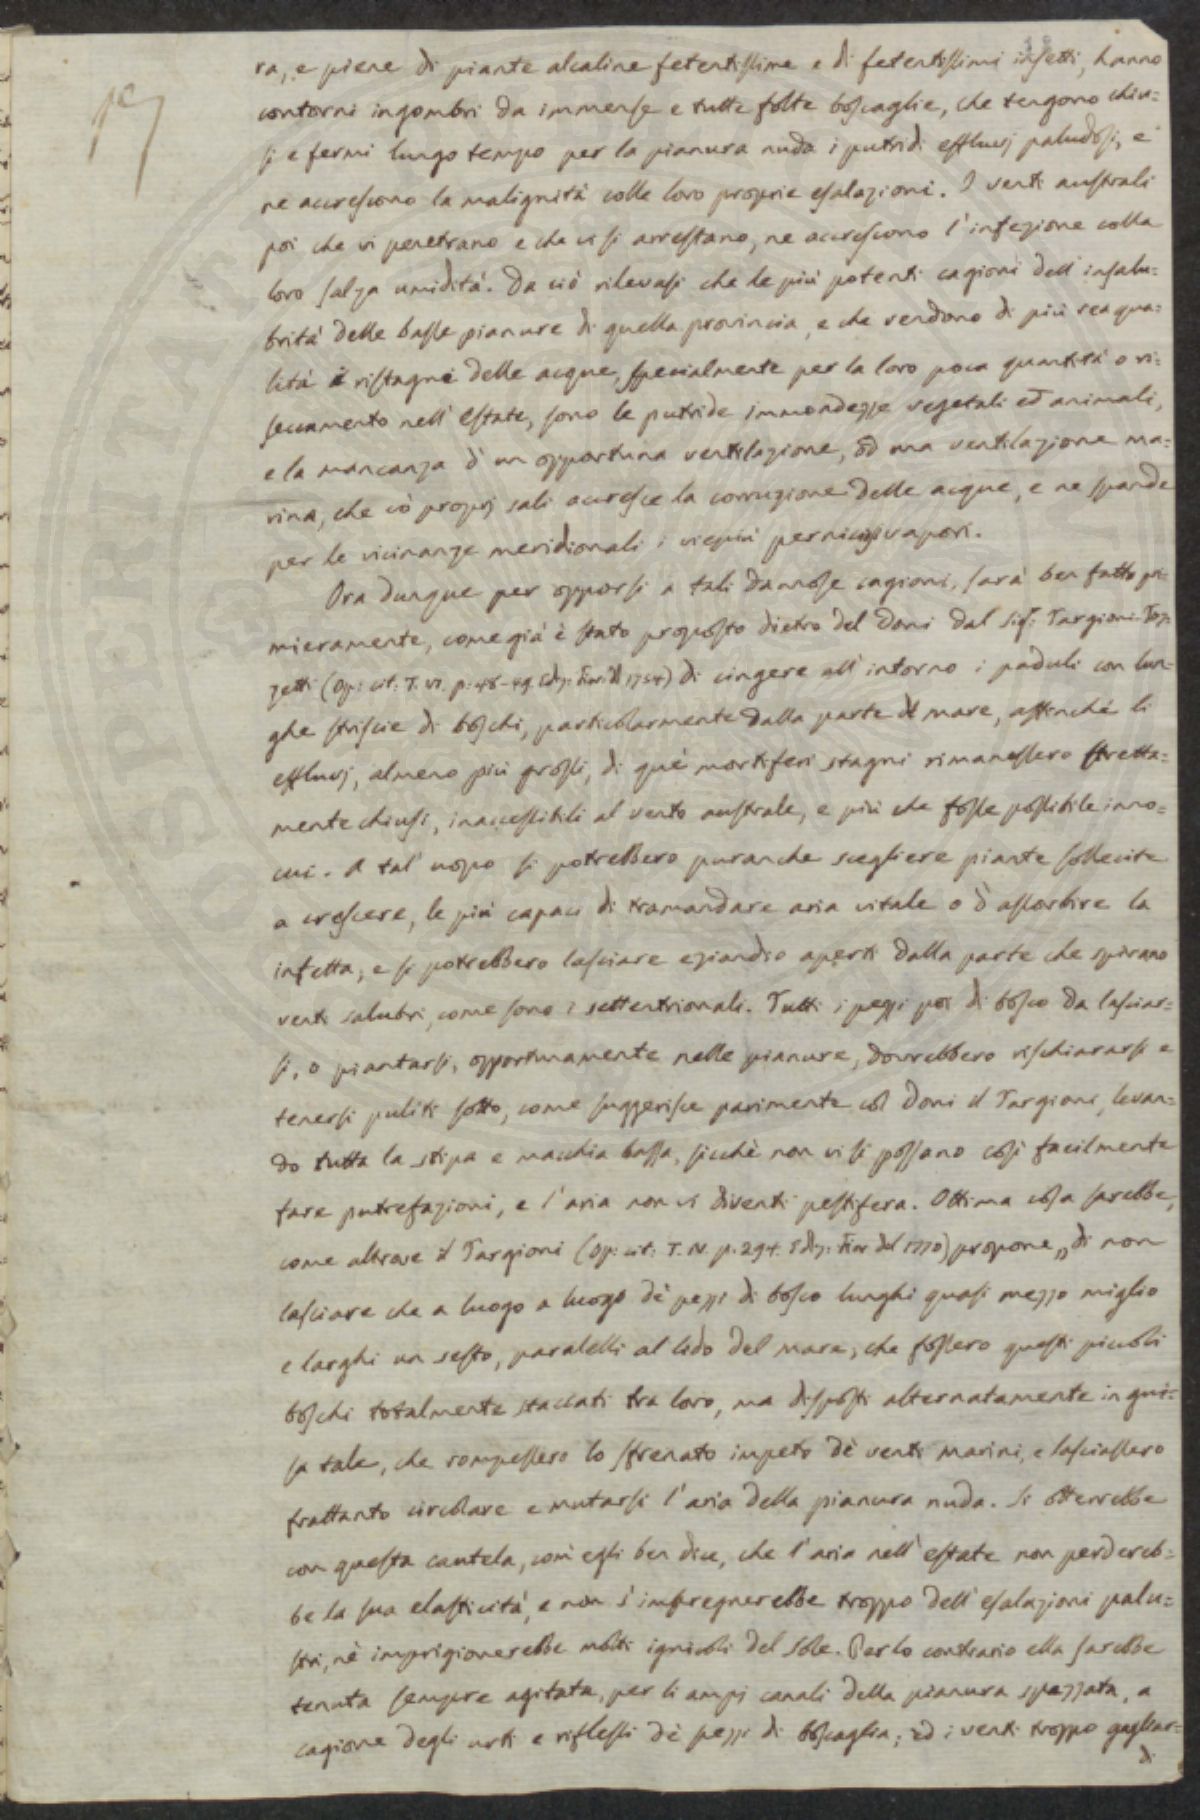 19
ra, e piene di piante alcaline fetentissime e di fetentissimi insetti, hanno
contorni ingombri da immense e tutte folte boscaglie, che tengono chiu=
si e fermi lungo tempo per la pianura nuda i putridi effluvj paludosi, e
ne accrescono la malignità colle loro proprie esalazioni. I venti australi
poi che vi penetrano e che vi si arrestano, ne accrescono l'infezione colla
loro salza umidità. Da ciò rilevasi che le più potenti cagioni dell'insalu=
brità delle basse pianure di quella provincia, e che rendono di più rea qua=
lità i ristagni delle acque, specialmente per la loro poca quantità o ri=
seccamento nell'estate, sono le putride immondezze vegetali ed animali,
e la mancanza d'un opportuna ventilazione, od una ventilazione ma=
rina, che cò proprj sali accresce la corruzione delle acque, e ne spande
per le vicinanze meridionali i viepiù perniciosi vapori.
Ora dunque per opporsi a tali dannose cagioni, sarà ben fatto pri=
mieramente, come già è stato proposto dietro del Doni dal Sig: Targioni-Toz=
zetti (Op: cit: T. VI. p. 48-49. Ediz: Fior: del 1754) di cingere all'intorno i paduli con lun=
ghe striscie di boschi, particolarmente dalla parte del mare, affinchè li
effluvj, almeno più grossi, di què mortiferi stagni rimanessero stretta=
mente chiusi, inaccessibili al vento australe, e più che fosse possibile inno=
cui. A tal'uopo si potrebbero puranche scegliere piante sollecite
a crescere, le più capaci di tramandare aria vitale o d'assorbire la
infetta; e si potrebbero lasciare eziandio aperti dalla parte che spirano
venti salubri, come sono i settentrionali. Tutti i pezzi poi di bosco da lasciar=
si, o piantarsi, opportunamente nelle pianure, dovrebbero rischiararsi e
tenersi puliti sotto, come suggerisce parimente col Doni il Targioni, levan=
do tutta la stipa e macchia bassa, sicchè non vi si possano così facilmente
fare putrefazioni, e l'aria non vi diventi pestifera. Ottima cosa sarebbe,
come altrove il Targioni (Op: cit: T. IV. p. 294. Ediz: Fior del 1770) propone „ di non
lasciare che a luogo a luogo dè pezzi di bosco lunghi quasi mezzo miglio
e larghi un sesto, paralelli al lido del mare; che fossero questi piccoli
boschi totalmente staccati tra loro, ma disposti alternatamente in gui=
sa tale, che rompessero lo sfrenato impeto dè venti marini, e lasciassero
frattanto circolare e mutarsi l'aria della pianura nuda. Si otterrebbe
con questa cautela, com'egli ben dice, che l'aria nell'estate non perdereb=
be la sua elasticità, e non s'impregnerebbe troppo dell'esalazioni palu=
stri, nè imprigionerebbe molti ignicoli del sole. Per lo contrario ella sarebbe
tenuta sempre agitata, per li ampj canali della pianura spezzata, a
cagione degli urti e riflessi dè pezzi di boscaglia; ed i venti troppo gagliar=
di